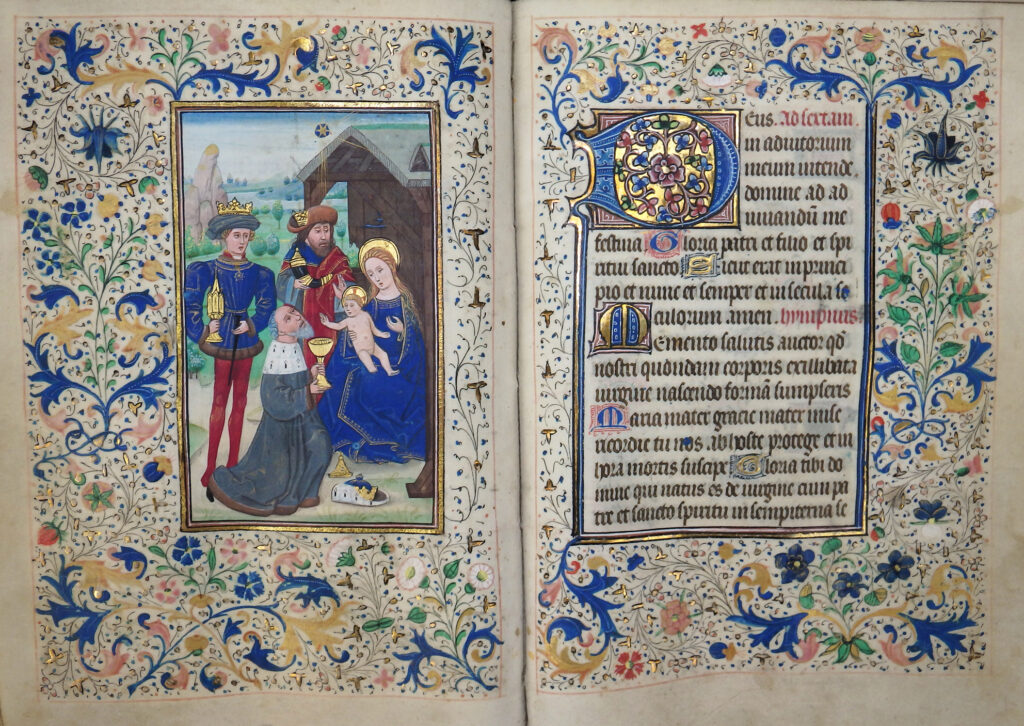 Deus. Ad sextam
in adiutorium
meum intende
domine ad ad
iuuandū me
festina Gloria patri et filio et spi
ritui sancto Sicut erat in princi
pio et nunc et semper et in secula se
culorum amen hympnus
Memento salutis auctor qd̄
nostri quondam corporis ex illibata
virgine nascendo formā sumpseris
Maria mater gracie mater mise
ricordie tu nos ab hoste protege et in
hora mortis suscipe Gloria tibi do
mine qui natus es de virgine cum pa
tre et sancto spiritu in sempiterna se